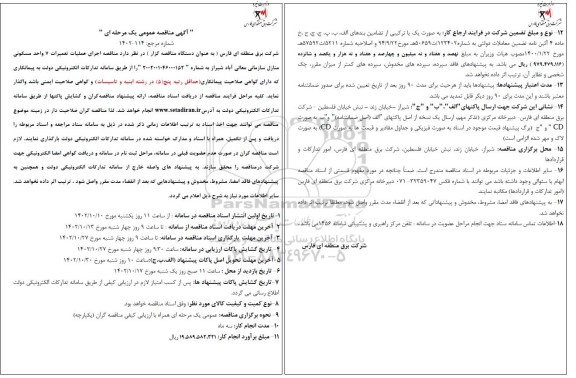 " آگهی مناقصه عمومی یک مرحله ای "
شماره مرجع: ۱۴۰۲-۱۱۴
شرکت برق منطقه ای فارس ( به عنوان دستگاه مناقصه گزار ) در نظر دارد مناقصه اجرای عملیات تعمیرات ۷ واحد مسکونی
منازل سازمانی معالی آباد شیراز به شماره "
را از طریق سامانه تدارکات الکترونیکی دولت به پیمانکاری
که دارای گواهی صلاحیت پیمانکاری(حداقل رتبه پنج(۵) در رشته ابنیه و تاسیسات) و گواهی صلاحیت ایمنی باشد واگذار
نماید. کلیه مراحل فرایند مناقصه از دریافت اسناد مناقصه، ارائه پیشنهاد مناقصه گران و گشایش پاکتها از طریق سامانه
تدارکات الکترونیکی دولت به آدرس www.setadiran.ir انجام خواهد شد. لذا مناقصه گران صلاحیت دار در زمینه موضوع
مناقصه می توانند جهت اخذ اسناد به ترتیب اطلاعات زمانی ذکر شده در ذیل به سامانه ستاد مراجعه و اسناد مربوطه را
دریافت و پس از تکمیل، همراه با اسناد و مدارک خواسته شده در سامانه تدارکات الکترونیکی دولت بارگذاری نمایند. لازم
است مناقصه گران در صورت عدم عضویت قبلی در سامانه، مراحل ثبت نام در سامانه و دریافت گواهی امضا الکترونیکی جهت
شرکت درمناقصه را محقق سازند. به پیشنهاد های واصله خارج از سامانه تدارکات الکترونیکی دولت و همچنین به
پیشنهادهای فاقد امضا، مشروط، مخدوش و پیشنهادهایی که بعد از انقضاء مدت مقرر واصل شود ، ترتیب اثر داده نخواهد شد.
سایر اطلاعات مورد نیاز به شرح ذیل اعلام می گردد.
۱ تاریخ اولین انتشار اسناد مناقصه در سامانه : از ساعت ۱۱ روز یکشنبه مورخ ۱۴۰۲/۱۰/۱۰
۲ آخرین مهلت دریافت اسناد مناقصه از سامانه : تا ساعت ۹ روز چهار شنبه مورخ ۱۴۰۲/۱۰/۱۳
۳ آخرین مهلت بارگذاری اسناد مناقصه در سامانه: ساعت ۹ روز چهار شنبه مورخ ۱۴۰۲/۱۰/۲۷
۴ تاریخ گشایش پاکات ارزیابی در سامانه: ساعت ۹:۳۰ روز چهار شنبه مورخ ۱۴۰۲/۱۰/۲۷
۵ آخرین مهلت تحویل اصل پاکات پیشنهاد (الف،ب،ج):ساعت ۱۰
۶ تاریخ بازدید از محل : ساعت ۱۱ صبح روز یک شنبه مورخ ۱۴۰۲/۱۰/۱۷
۷ تاریخ گشایش پاکات پیشنهاد ها: پس از کسب امتیاز لازم در ارزیابی کیفی از طریق سامانه تدارکات الکترونیکی دولت
اطلاع رسانی می گردد.
۸ نوع کمیت و کیفیت کالای مورد نظر: وفق اسناد مناقصه خواهد بود.
۹ نحوه برگزاری مناقصه: عمومی یک مرحله ای همراه با ارزیابی کیفی مناقصه گران (یکپارچه)
۱۰ مدت انجام کار: سه ماه
۱۱ مبلغ برآورد انجام کار: ۱۹،۵۸۹،۵۸۳،۳۳۱ ریال
۱۲ نوع و مبلغ تضمین شرکت در فرایند ارجاع کار: به صورت یک یا ترکیبی از تضامین بندهای الف،ب،پ،ج،چ،ح،خ
ماده ۴ آئین نامه تضمین معاملات دولتی به شماره
مورخ ۱۴۰۰/۱/۲۲ مصوب هیات وزیران به مبلغ نهصد و هفتاد و نه میلیون و چهارصد و هفتاد و نه هزار و یکصد و شانزده
(۹۷۹،۴۷۹،۱۱۶) ریال می باشد. به پیشنهادهای فاقد سپرده، سپرده های مخدوش، سپرده های کمتر از میزان مقرر، چک
شخصی و نظایر آن، ترتیب اثر داده نخواهد شد.
۱۳ مدت اعتبار پیشنهادها: پیشنهادها باید از هرحیث برای مدت ۹۰ روز بعد از تاریخ تعیین شده برای صدور ضمانتنامه
معتبر باشند و این مدت برای ۹۰ روز دیگر قابل تمدید می باشد.
۱۴ نشانی این شرکت جهت ارسال پاکتهای "الف"، "ب" و "ج": شیراز –خیابان زند – نبش خیابان فلسطین - شرکت
برق منطقه ای فارس- دبیرخانه مرکزی
۱۵ محل برگزاری مناقصه: شیراز، خیابان زند، نبش خیابان فلسطین، شرکت برق منطقه ای فارس، امور تدارکات و
قراردادها
۱۶ سایر اطلاعات و جزئیات مربوطه در اسناد مناقصه مندرج است
(امور تدارکات و قراردادها) مکاتبه نمایند.
۱۷ به پیشنهادهای فاقد امضا، مشروط، مخدوش و پیشنهاداتی که بعد از انقضاء مدت مقرر
نخواهد شد.
۱۸ اطلاعات تماس سامانه ستاد جهت انجام مراحل عضویت در سامانه : تلفن مرکز راهبری و پشتیبانی سامانه ۱۴۵۶ می باشد.
شرکت برق منطقه ای فارس